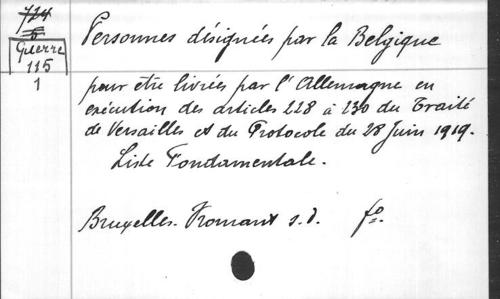 724
5
Guerre
115
1
Personnes désignées par la Belgique
pour être livrées par l'Allemagne en
exécution des articles 228 à 230 du Traité
de Versailles et du Protocole du 28 Juin 1919.
Liste Fondamentale.
Bruxelles. Vromant s.d. fo.